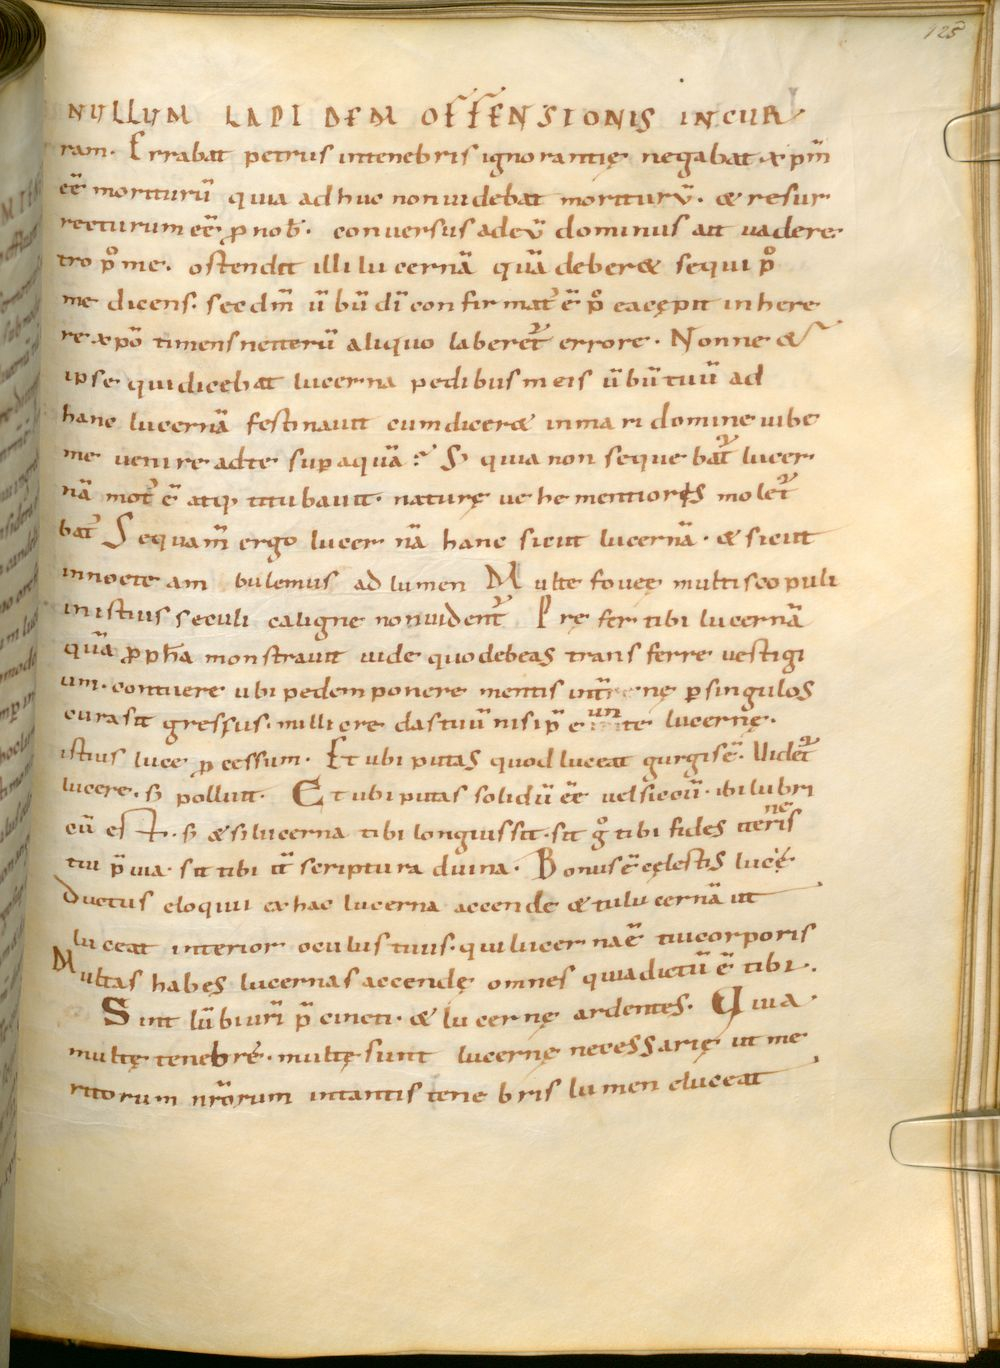 125
NULLUM LAPIDEM OFFENSIONIS INCUR
ram. Errabat petrus intenebris ignorantię negabat xp̄m
eē̄ moriturū quia adhuc nonuidebat moriturū. & resur
recturum eē̄ ꝓ nob̄. conuersus adeū dominus ait uadere
tro pꝰ me. ostendit illi lucernā quā deber& sequi pꝰ
me dicens. sec dm̄ ūbū dī confirmat̄ ē pꝰ ea cępit inhere
re xpō timens neiterū aliquo laberet̄ errore. Nonne &
ipse quidicebat lucerna pedibus meis ūbū tuū ad
hanc lucernā festinauit cum dicer& inmari domine iube
me uenire adte sup aquā? S; quia non sequebat̄ lucer
nā mot̄ ē atq; titubauit. naturę uehementioris molet̄
bat̄ Sequam̄ ergo lucernā hanc sicut lucernā. & sicut
innocte am bulemus ad lumen Multe foueę multi scopuli
inistius seculi caligne nonuident̄ Prę fer tibi lucernā
quā ꝓph̄a monstrauit uide quo debeas transferre uestigi
um. contuere ubi pedem ponere mentis int̄ne ꝑsingulos
curasit gressus. nulli cre das tuū nisi p̄ eunte lucernę.
istius luce ꝓcessum. Et ubi putas quod luceat gurgis ē. Uidet̄
lucere. s; polluit. Et ubi putas solidū eē̄ uel siccū. ibi lubri
cū est. s; & si lucerna tibi longius sit. sit g̊ tibi fides itineris
tui p̄uia. sit tibi it̄ scriptura diuina. Bonus ē cęlestis lucę
ductus eloquii ex hac lucerna accende & tu lucernā ut
luceat interior oculus tuus. qui lucerna ē tui corporis
Multas habes lucernas accendę omnes quia dictū ē tibi.
Sint lūbi uri̅ p̄cincti. & lucernę ardentes. Quia
multę tenebrę. multę sunt lucernę necessarię ut me
ritorum nr̄orum intantis tenebris lumen eluceat